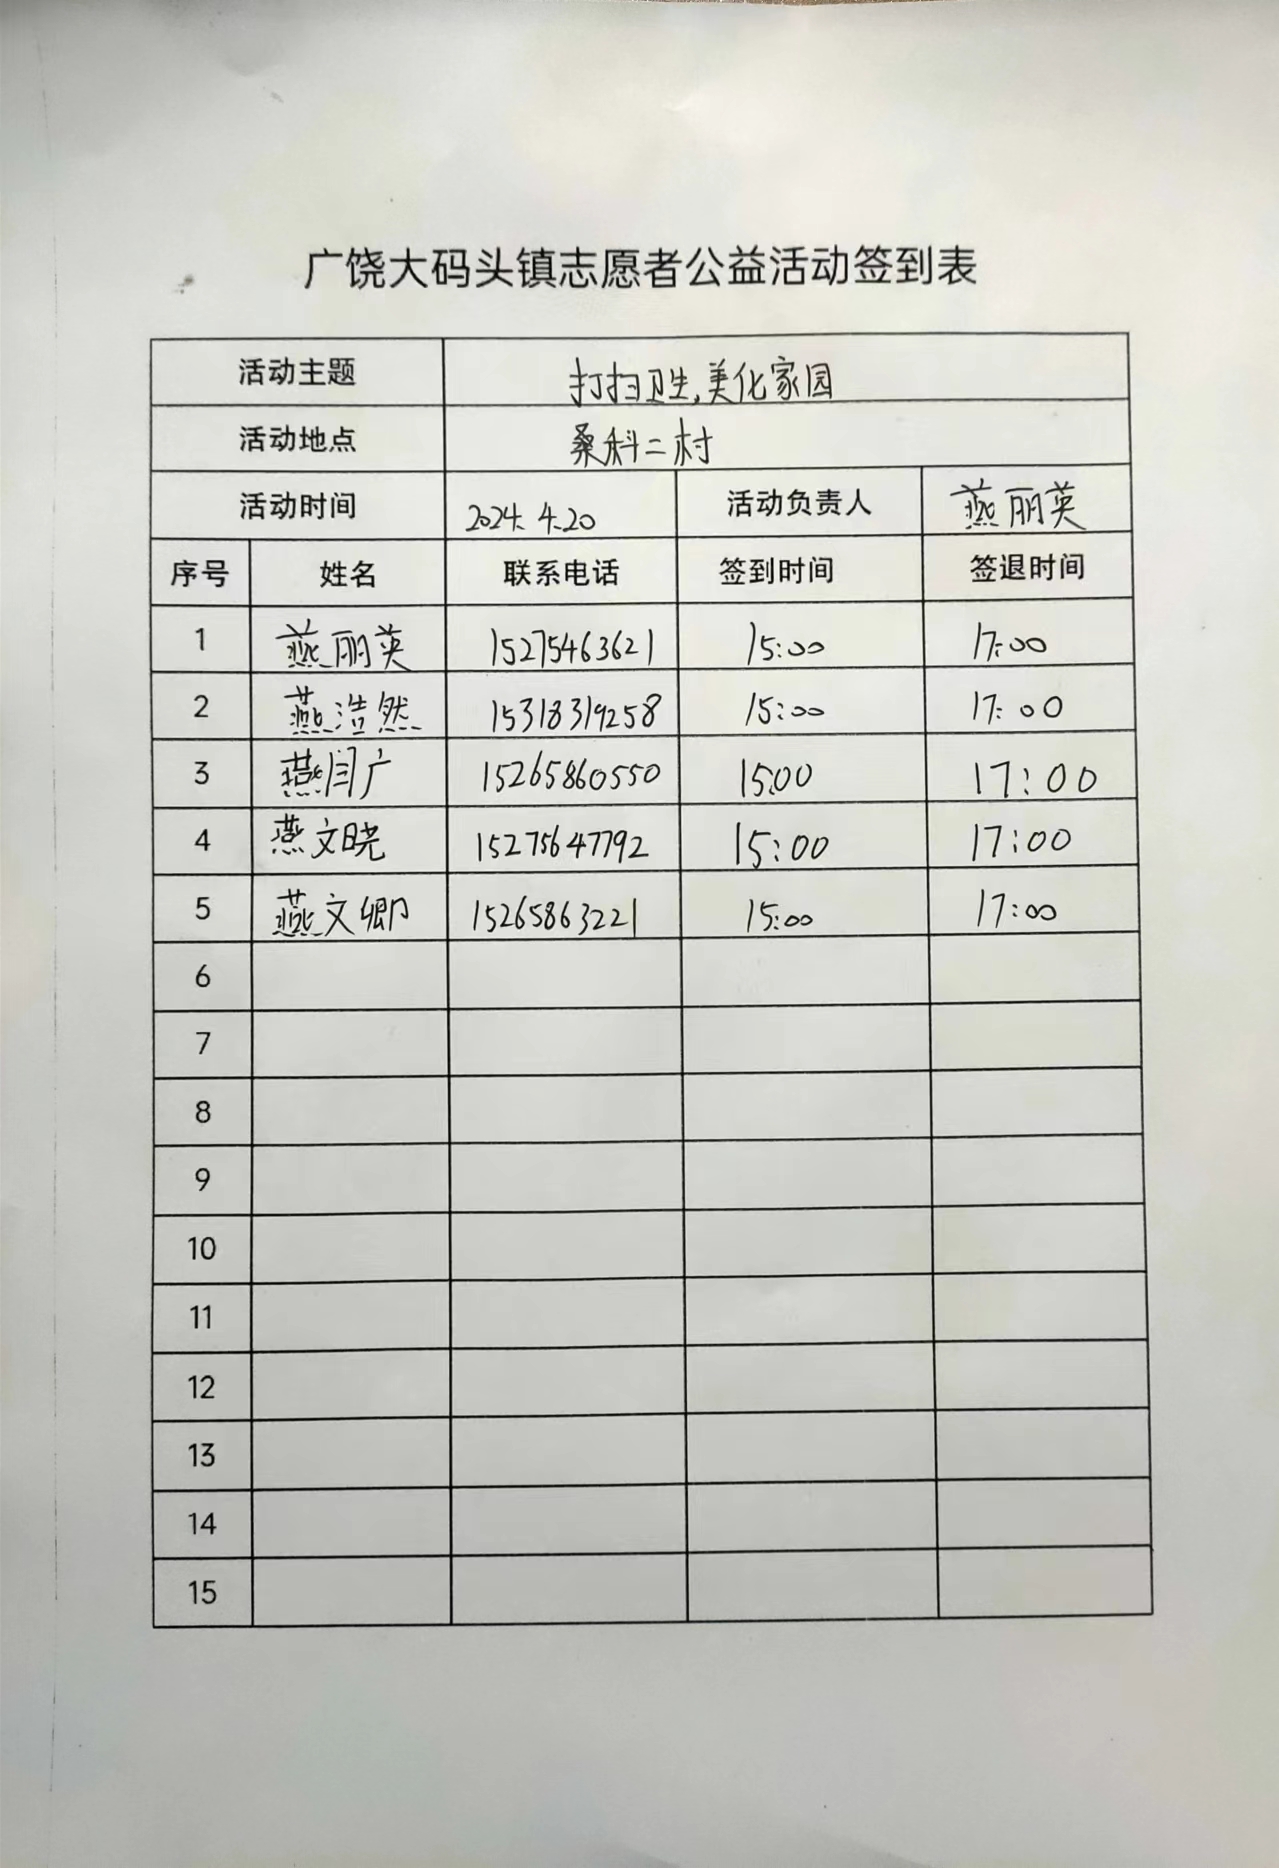 广饶大码头镇志愿者公益活动签到表
活动主题 打扫卫生,美化家园
活动地点 桑科二村
活动时间 2024.4.20 活动负责人 燕丽英
序号 姓名 联系电话 签到时间 签退时间
1 燕丽英 15275463621 15:00 17:00
2 燕浩然 15318319258 15:00 17:00
3 燕闫广 15265860550 15:00 17:00
4 燕文晓 15275647792 15:00 17:00
5 燕文卿 15265863221 15:00 17:00
6
7
8
9
10
11
12
13
14
15